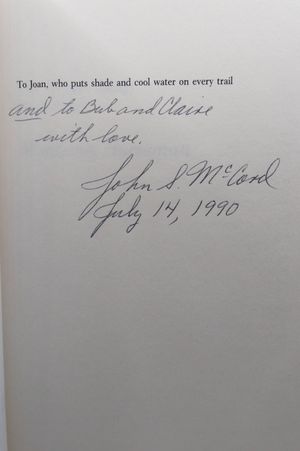 To Joan, who puts shade and cool water on every trail
and to Bub and Claire
with love.
John S. McCord
July 14, 1990